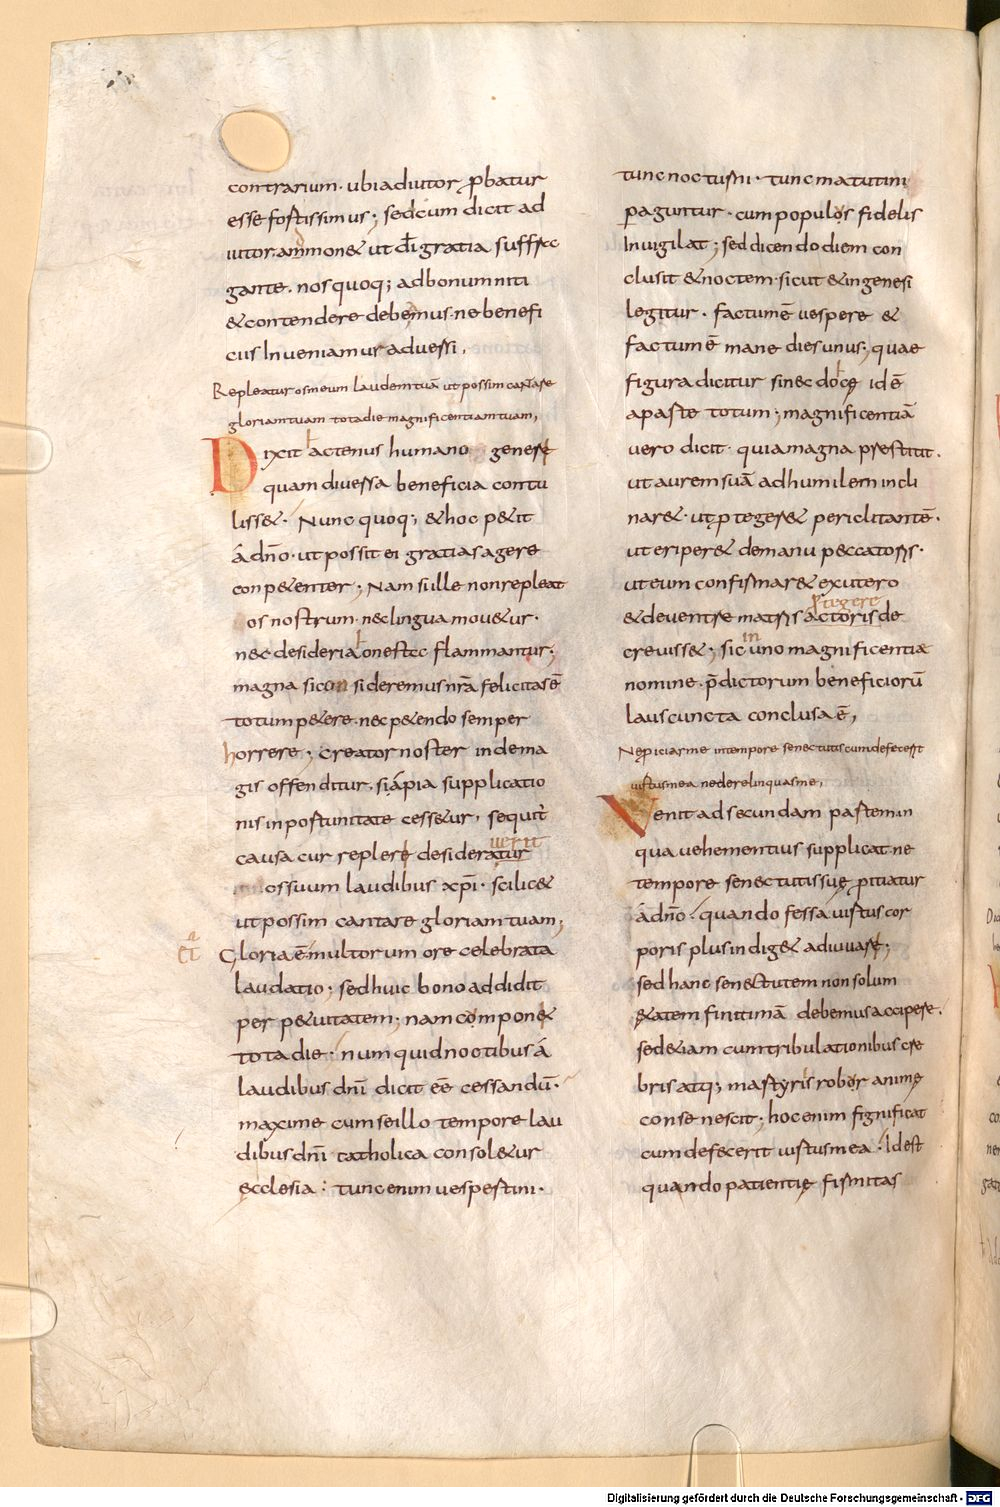 contrarium· ubiadiutor p̱batur
esse fortissimus; sedcum dicit ad
iutor ammon& ut dī gratia suffra
gante· nosquoq; adbonumniti
&contendere debemus· ne benefi
ciis Inueniamur aduersi,
Repleatur osmeum laudemtuā ut possim cantare
gloriamtuam totadie magnificentiamtuam,
Dixit hactenus humano generi
quam diuersa beneficia contu
liss&· Nunc quoq; &hoc p&it
á dn̄o· ut possit ei gratias agere
conp&enter; Nam siille nonrepleat
os nostrum· neclingua mou&ur·
nec desideria honeste flammantur;
magna si consideremus nr̄a felicitas ē
totum p&ere· nec p&endo semper
horrere; creator noster inde ma
gis offenditur, si ápia supplicatio
nis inportunitate cess&ur, sequit̄
causa cur replere desideratur
uerit
os suum laudibus xp̄i· scilic&
ut possim cantare gloriam tuam;
Gloria ē multorum ore celebrata
laudatio; sedhuic bono addidit
per p&uitatem; nam compon&
tota die· numquid noctibus á
laudibus dn̄i dicit eē cessandū·
maxime cum seillo tempore lau
dibus dn̄i catholica consol&ur
ęcclesia: tunc enim uespertini·
tunc nocturni· tunc matutini
paguntur· cum populos fidelis
Inuigilat; sed dicendo diem con
clusit &noctem· sicut &ingenesi
legitur· factumē uespere &
factumē mane dies unus; quae
figura dicitur sinecdoce id ē
aparte totum; magnificentiā
vero dicit· quia magna prestitit·
ut aurem suā ad humilem incli
nar&· ut p̱teger& periclitantē·
ut eriper& demanu peccatoris·
ut eum confirmar& exutero
p̱tegere
&deuentre matris actoris de
creuiss&; sic in uno magnificentiae
nomine· p̄dictorum beneficiorū
laus cuncta conclusa ē,
Neproiciasme intempore senectutis cumdefecerit
uirtusmea nederelinquasme,
Venit ad secundam partem in
qua uehementius supplicat ne
tempore senectutis suę p̱itiatur
á dn̄o· quando fessa uirtus cor
poris plus indig& adiuuari;
sed hanc senectutem non solum
ętatem finitimā debemus accipere·
sed&iam cum tribulationibus cre
bris atq; martyris robor animę
consenescit; hoc enim significat
cum defecerit uirtus mea· Idest
quando patientię firmitas
Digitalisierung gefördert durch die Deutsche Forschungsgemeinschaft - DFG